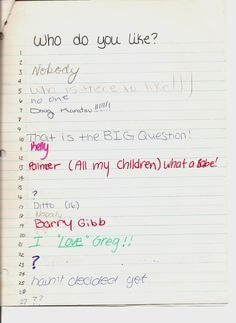 Who do you like?
1
2
3 Nobody
4
5 Who is there to like!!!
6 no one
7 Doug !!!!!!!
8
9
10 That is the BIG Question!
11
12 Kelly
13 Palmer (All my Children) what a Babe!
14
15
16 ?
17 Ditto (16)
18 Nobody
19 Barry Gibb
20
21 I "Love" Greg!!
22
23 ?
24
25 hasn't decided yet
26
27 ??